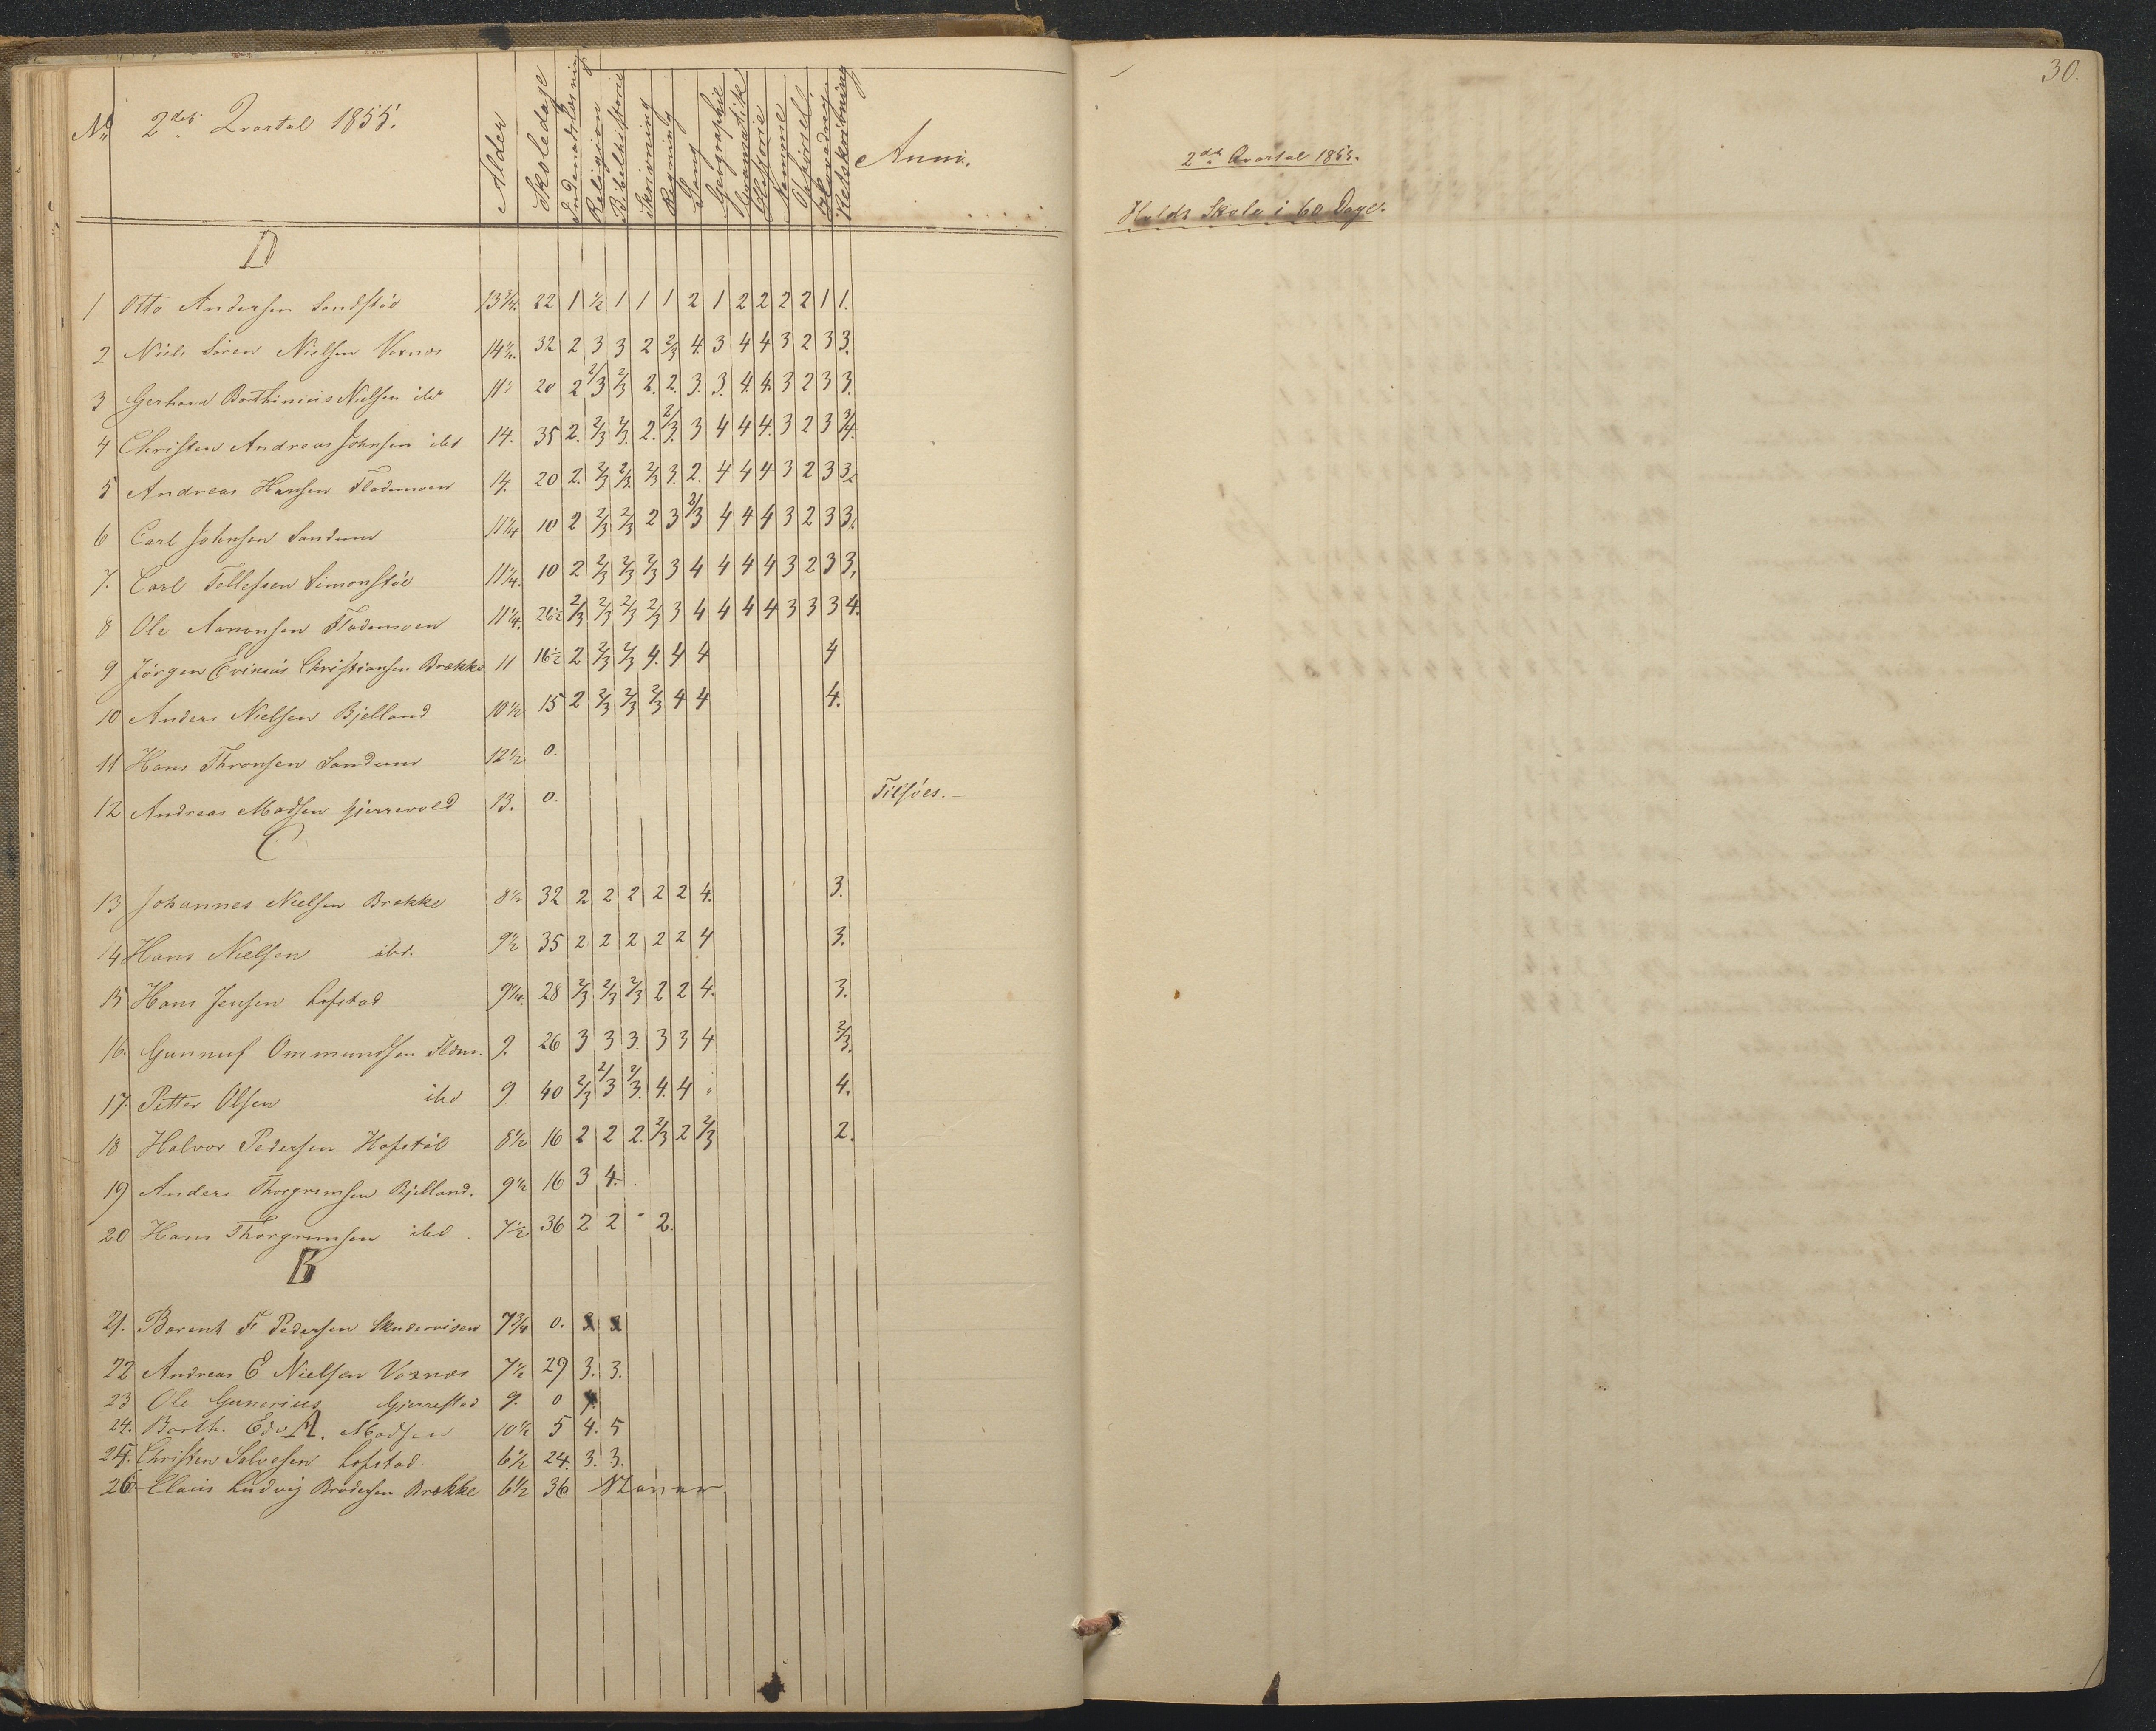 No 2det Qvartal 1855. Alder Skoledage Indenadslæsning Religion Bibelhistorie Skrivning Regning Sang Geographie Gramatik Historie Opførsel Hovedregning Retskrivning Anm.
D
1 Otto Andersen Sandstøe 13 3/4. 22 1 1/2 1 1 1 2 1 2 2 2 2 1 1.
2 Niels Søren Nielsen Voxnæs 14 1/4. 32 2 3 3 2 2/3 4. 3 4 4 3 2 3 3.
3 Gerhard Nielsen ibd 20 2 2/3 2/3 2. 2. 3. 3. 4. 4. 3 2 3 3.
4 Christen Andreas Johnsen ibd 14. 35 2. 2/3 2/3. 2. 2/3. 3 4 4 4. 3 2 3 3/4.
5 Andreas Hansen Flademoen 14. 20 2. 2/3 2/3. 2/3 3. 2. 4 4 4 3 2 3 3.
6 Carl Johnsen Sandum 11 1/4 10 2 2/3 2/3 2 3 2/3 4 4 4 3 2 3 3.
7. Carl Tellefsen Simonstøe 11 1/4. 10 2 2/3 2/3 2/3 3 4 4 4 4 3 2 3 3.
8 Ole Aanonsen Flademoen 11 1/4. 26 1/2 2/3 2/3 2/3 2/3 3 4 4 4 4 3 3 3 4.
9 Jørgen Christiansen Brække 11 16 1/2 2 2/3 2/3 4. 4 4 4
10 Anders Nielsen Bjelland 10 1/2 15 2 2/3 2/3 2/3 4 4 4.
11 Hans Thronsen Sandum 12 1/2 0.
12 Andreas Madsen 13. 0. Tilsøes.
C.
13 Johannes Nielsen Brække 8 1/2 32 2 2 2 2 2 4. 3.
14 Hans Nielsen ibd. 9 1/2 35 2 2 2 2 2 4 3.
15 Hans Jensen Lofstad 9 1/4. 28 2/3 2/3 2/3 2 2 4. 3.
16. Gunnuf Ommundsen Fldm. 9. 26 3 3 3. 3 3 4 2/3.
17. Petter Olsen ibd 9 40 2/3 2/3 2/3. 4. 4 " 4.
18 Halvor Pedersen Hofstøl 8 1/2 16 2 2 2. 2/3 2 2/3 2.
19 Anders Thorgrimsen Bjelland. 9 1/2 16 3 4.
20 Hans Thorgrimsen ibd. 7 1/2 36 2 2 " 2.
B
21. Berent Fr Pedersen 7 3/4 0. 3 3
22 Andreas E Nielsen Voxnæs 7 1/2 29 3. 3.
23 Ole Gunerius Gjerrestad 9. 0 4.
24. Barth. Edv. A. Madsen 10 1/2 5 4. 5
25. Christen Salvesen Lofstad. 6 1/2 24. 3. 3.
26 Claus Ludvig Brodersen Brække 6 1/2 36
30.
2det Qvartal 1855.
Holdt Skole i 60 Dage.